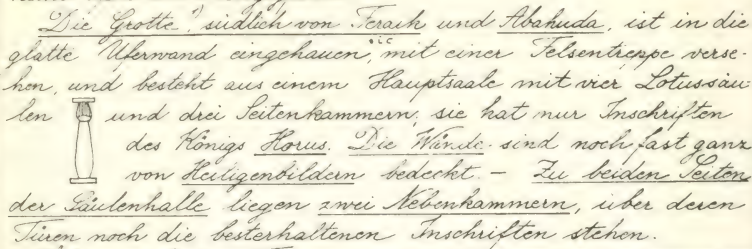 Die Grotte²⁾, südlich von Feraik und Abahuda, ist in die
glatte Uferwand eingehauen, mit einer Felsentreppe verse-
hen, und besteht aus einem Hauptsaale mit vier Lotussäu-
len und drei Seitenkammern; sie hat nur Inschriften
des Königs Horus. Die Wände sind noch fast ganz
von Heiligenbildern bedeckt. – Zu beiden Seiten
der Säulenhalle liegen zwei Nebenkammern, über deren
Türen noch die besterhaltenen Inschriften stehen.